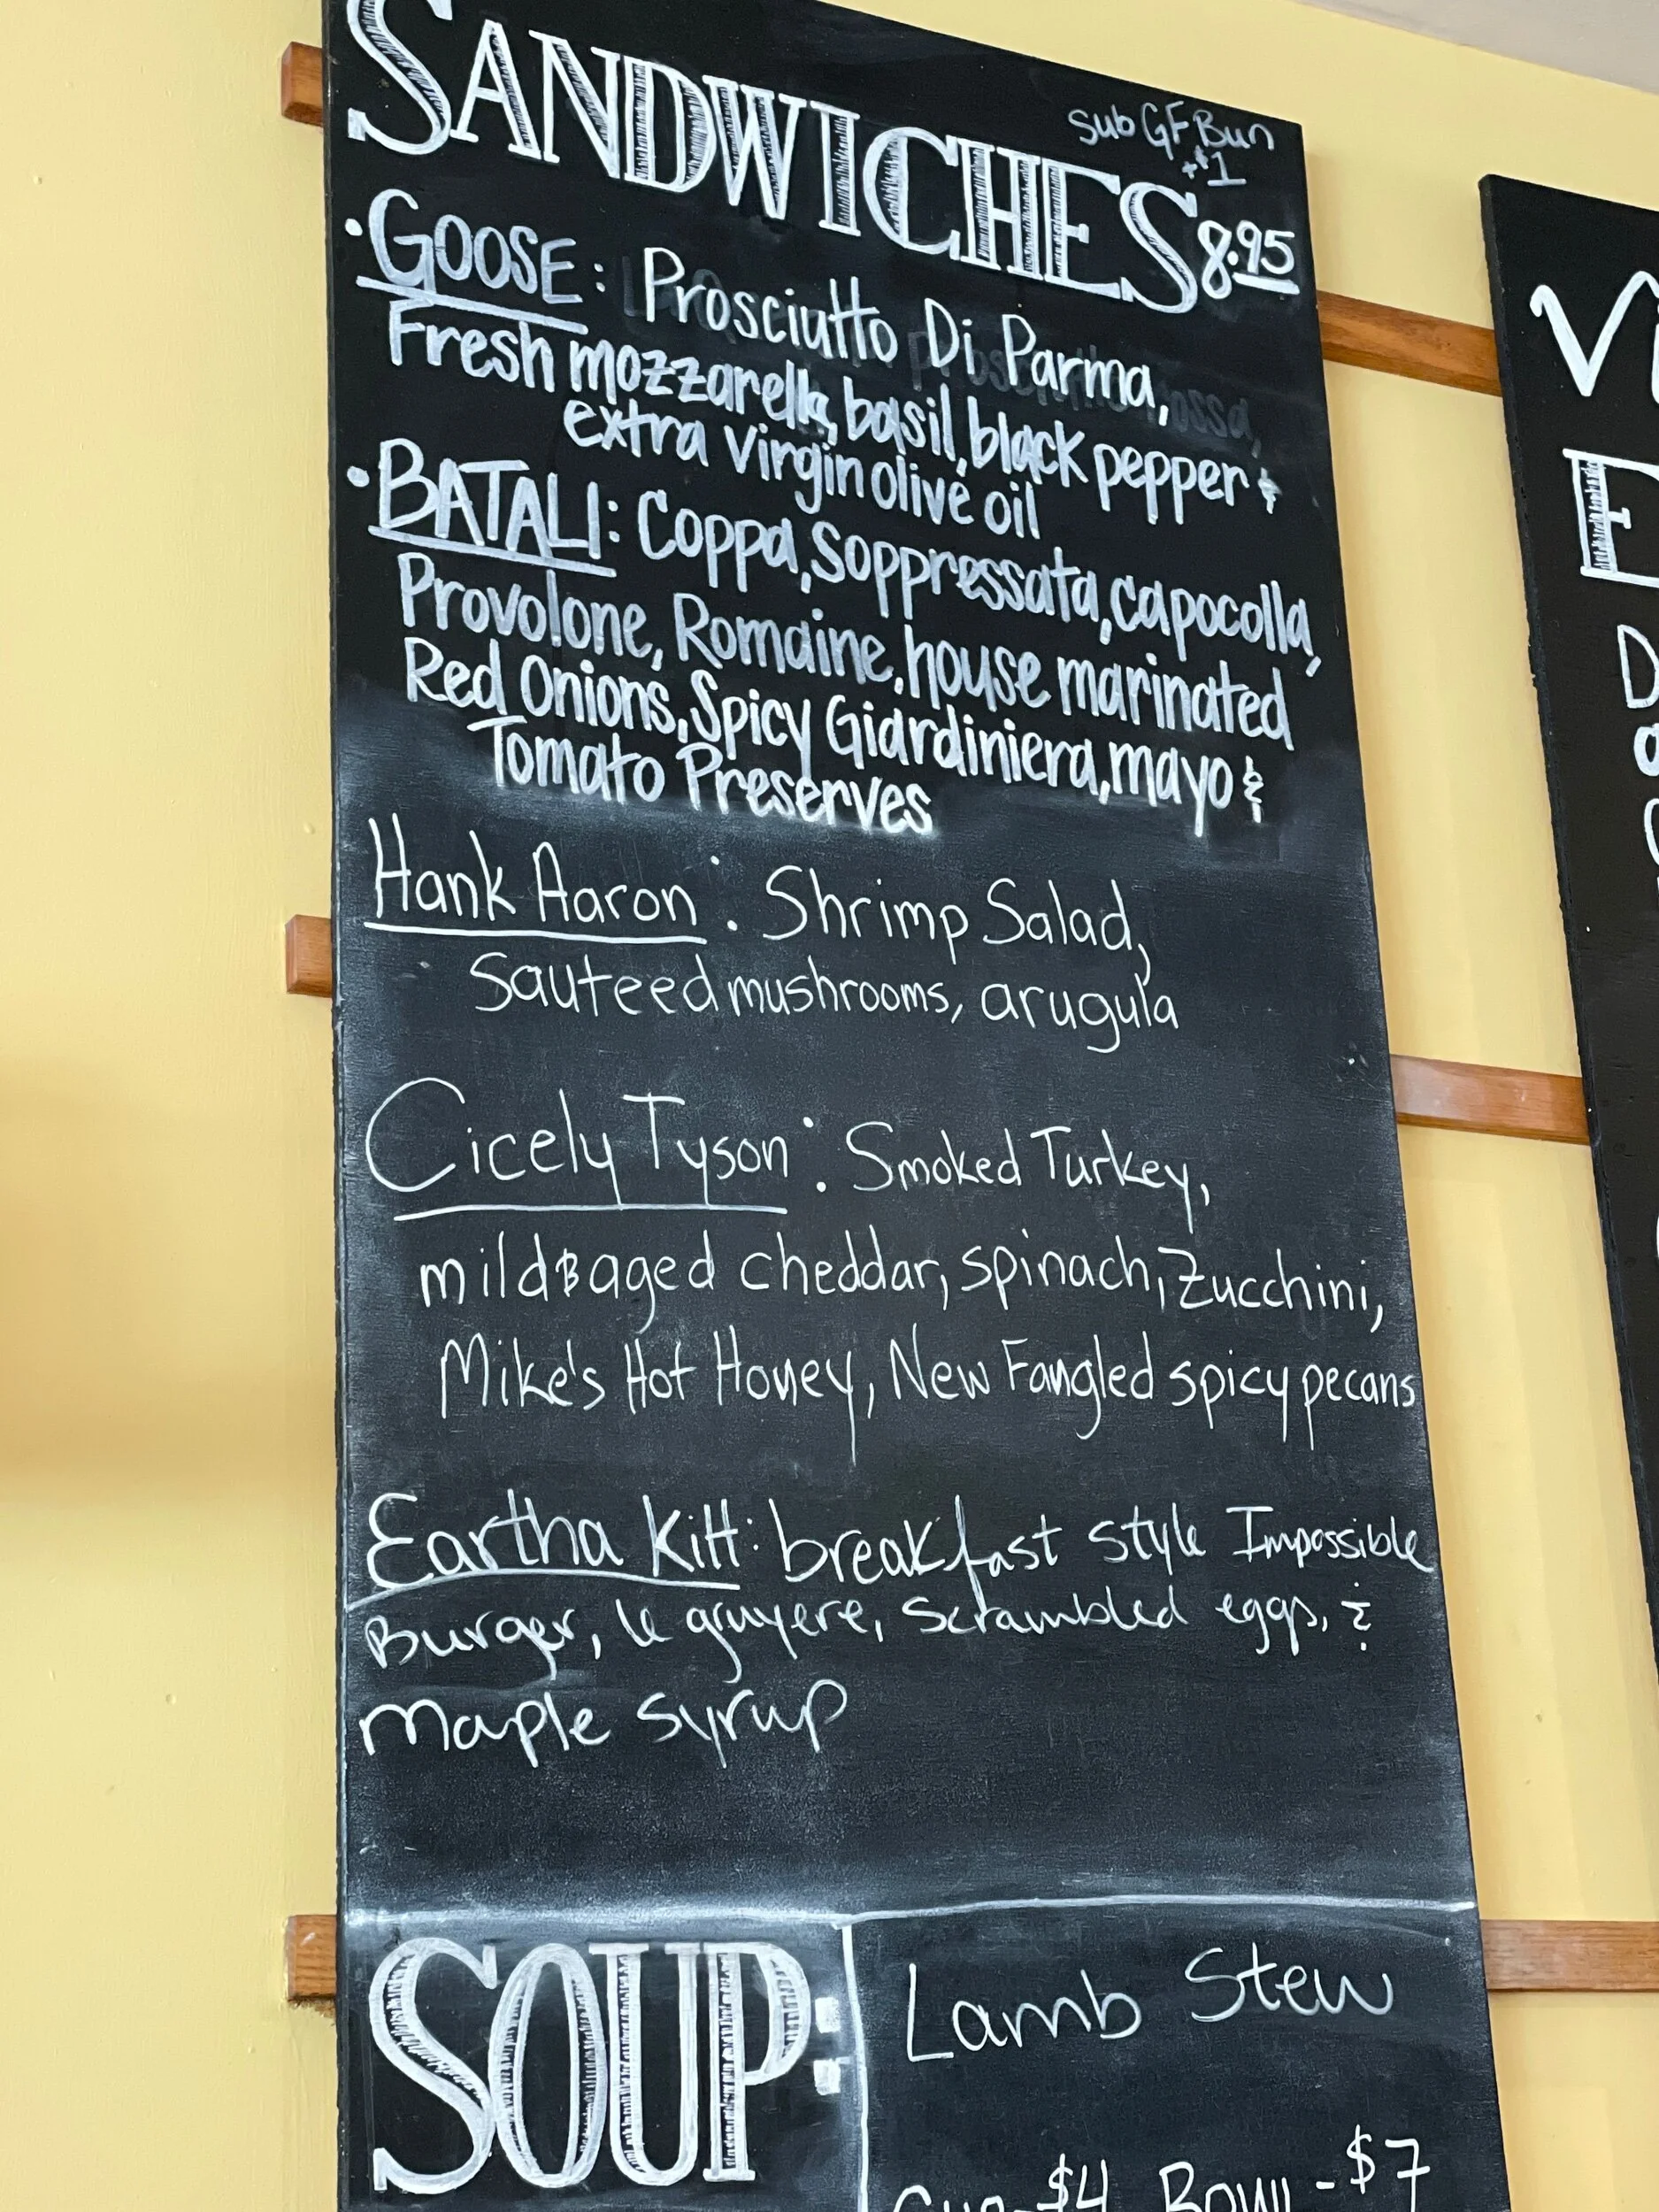 SANDWICHES
sub GF Bun
+$1
8.95
• GOOSE: Prosciutto Di Parma,
Fresh mozzarella, basil, black pepper &
extra virgin olive oil
• BATALI: Coppa, Soppressata, capocolla,
Provolone, Romaine, house marinated
Red Onions, Spicy Giardiniera, mayo &
Tomato Preserves
Hank Aaron: Shrimp Salad,
Sauteed mushrooms, arugula
Cicely Tyson: Smoked Turkey,
mild & aged cheddar, spinach, zucchini,
Mike's Hot Honey, New Fangled spicy pecans
Eartha Kitt: breakfast style Impossible
Burger, le gruyere, scrambled eggs, &
maple syrup
SOUP:
Lamb Stew
Cup-$4 Bowl-$7